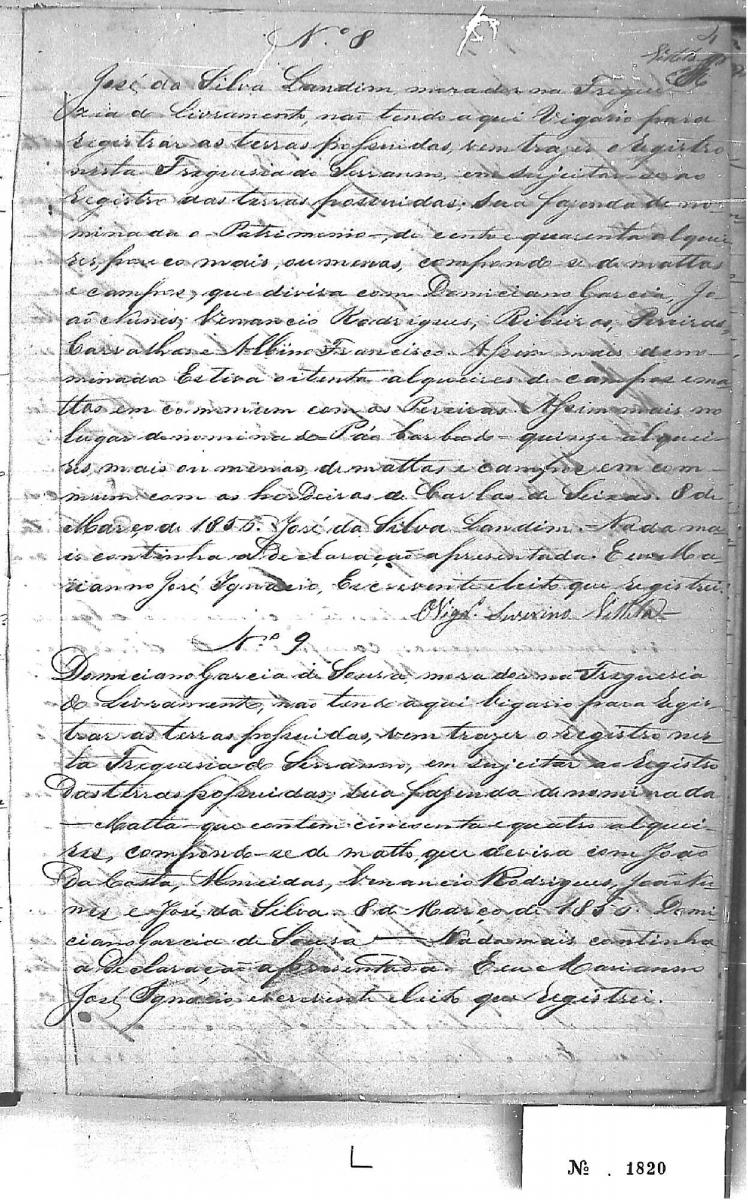 4
Nº 8
José da Silva Landim, morador na Fregue-
zia do Livramento, não tendo aqui Vigario para
registrar as terras possuidas, vem trazer o registro
nesta Freguesia do Serranno, em sujeitar-se ao
registro das terras possuidas; sua fazenda deno-
minada o - Patrimonio -, de cento e quarenta alquei-
res, pouco mais, ou menos, compondo-se de mattas
e campos, que divisa com Domiciano Garcia, Jo-
ão Nunes, Venancio Rodrigues, Ribeiros, Pereiras,
Carvalhos e Albino Francisco. Assim mais deno-
minada Estiva oitenta alqueires de campos e ma-
ttas em commum com os Pereiras. Assim mais no
lugar denominado Páo Barbado - quinze alquei-
res, mais ou menos, de mattas e campos em com-
mum com os herdeiros de Carlos de Seixas. 8 de
Março de 1855. José da Silva Landim. - Nada ma-
is continha a declaração apresentada. E eu Ma-
rianno José Ignacio, Escrevente eleito que registrei.
O Vigº. Severino
Nº 9
Domiciano Garcia de Sousa, morador na Freguesia
do Livramento, não tendo aqui Vigario para regis-
trar as terras possuidas, vem trazer o registro nes-
ta Freguesia do Serranno, em sujeitar ao registro
das terras possuidas, sua fazenda denominada
- Matta - que contem cincoenta e quatro alquei-
res, compondo-se de matto, que devisa com João
da Costa, Almeidas, Venancio Rodrigues, João Nu-
nes e José da Silva. 8 de Março de 1855. Domi-
ciano Garcia de Sousa - Nada mais continha
a declaração apresentada. E eu Marianno
José Ignácio escrevente eleito que registrei.
L
№ . 1820